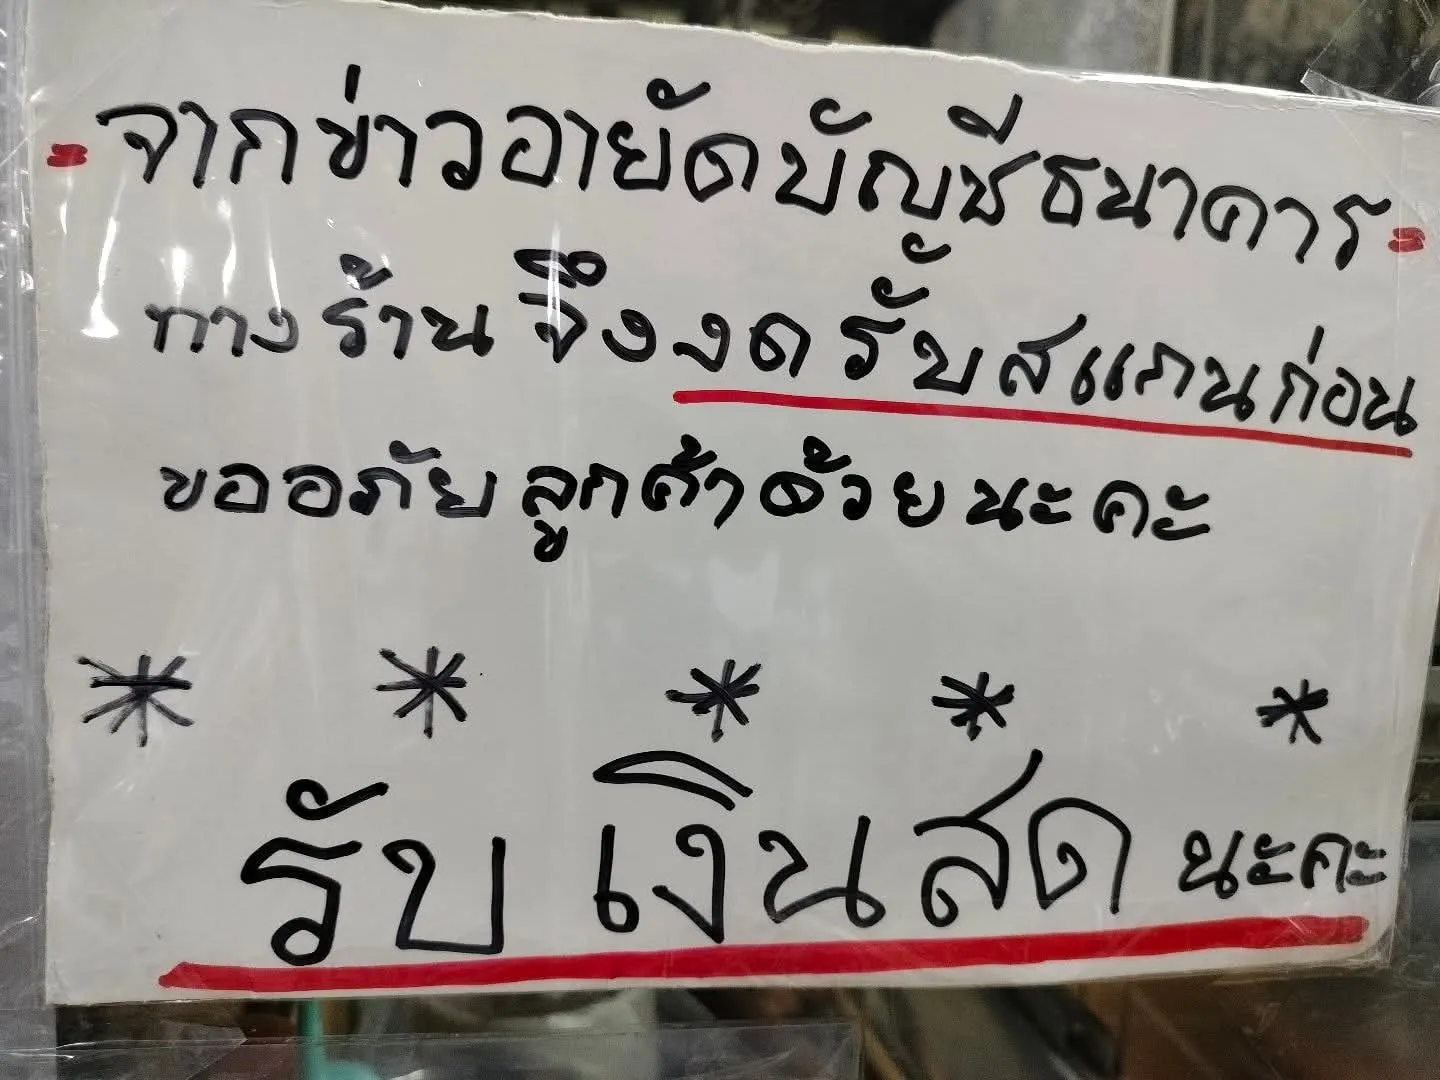 = จากข่าวอายัดบัญชีธนาคาร =
ทางร้านจึงงดรับสแกนก่อน
ขออภัยลูกค้าด้วยนะคะ
* * * * *
รับเงินสดนะคะ